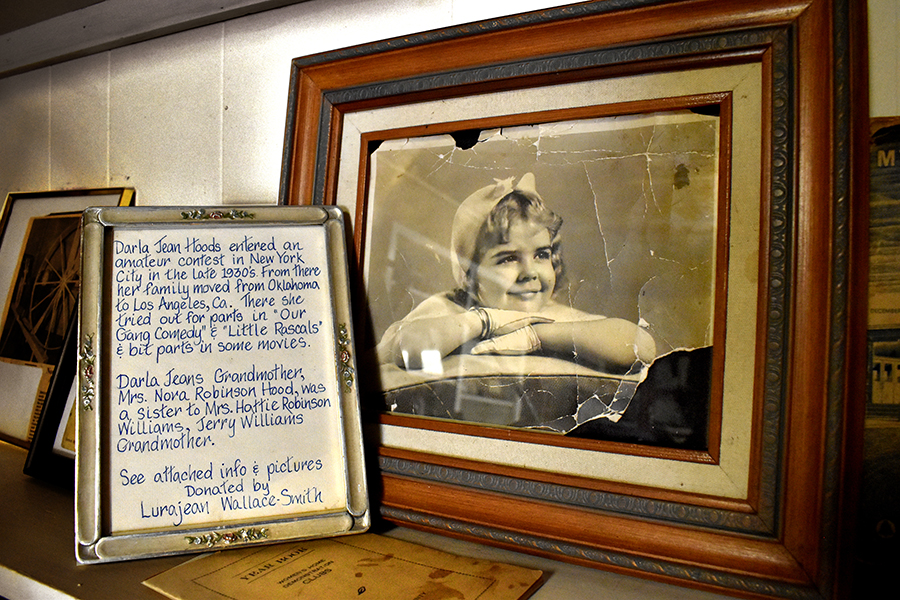 Darla Jean Hoods entered an
amateur contest in New York
City in the late 1930's. From there
her family moved from Oklahoma
to Los Angeles, Ca. There she
tried out for parts in "Our
Gang Comedy" & "Little Rascals"
& bit parts in some movies.
Darla Jeans Grandmother,
Mrs. Nora Robinson Hood, was
a sister to Mrs. Hattie Robinson
Williams, Jerry Williams
Grandmother.
See attached info & pictures
Donated by
Lurajean Wallace-Smith
YEAR BOOK
WOMEN'S HOME
DEMONSTRATION
CLUBS
M